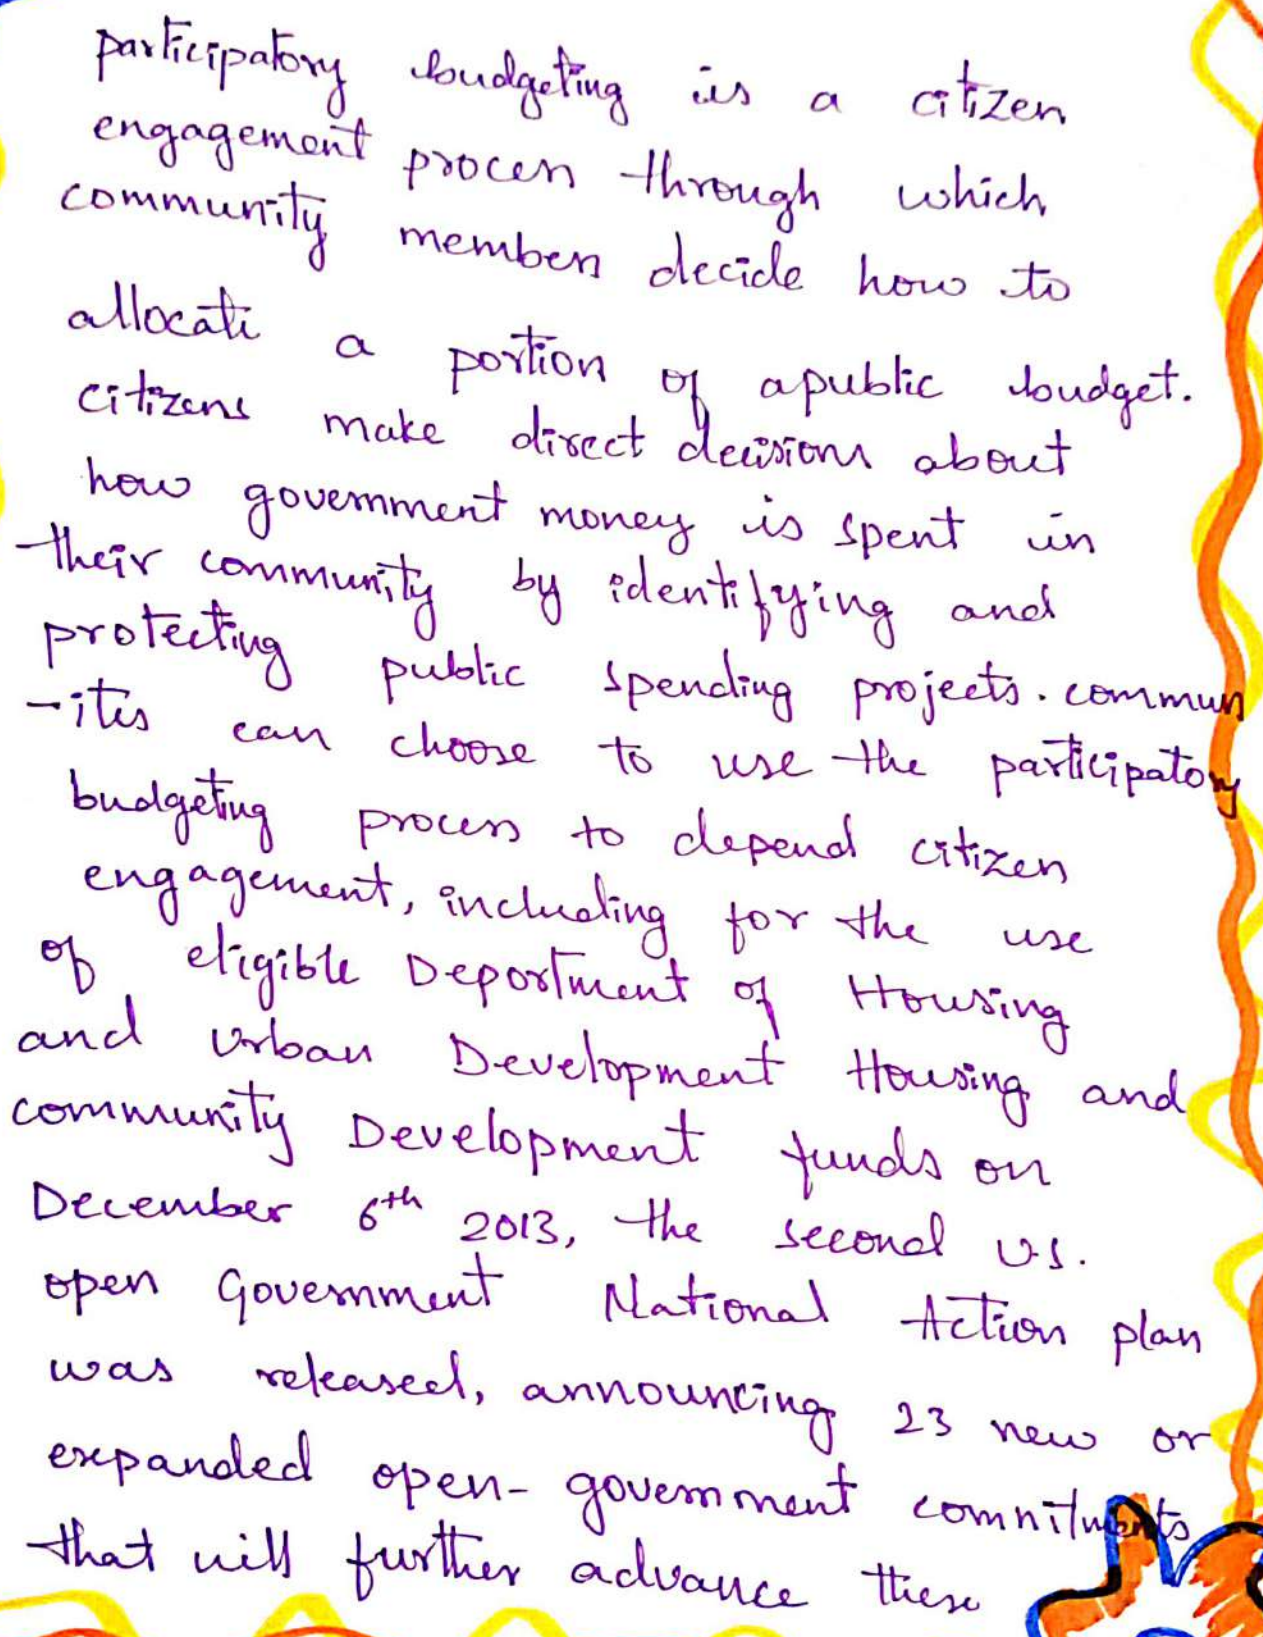 participatory budgeting is a citizen
engagement process through which
community members decide how to
allocate a portion of apublic budget.
citizens make direct decisions about
how government money is spent in
their community by identifying and
protecting public spending projects. commun
-itis can choose to use the participatory
budgeting process to depend citizen
engagement, including for the use
of eligible Deportment of Housing
and Urban Development Housing and
community Development funds on
December 6th 2013, the second U.S.
open Government National Action plan
was released, announcing 23 new or
expanded open- government comnitments
that will further advance these